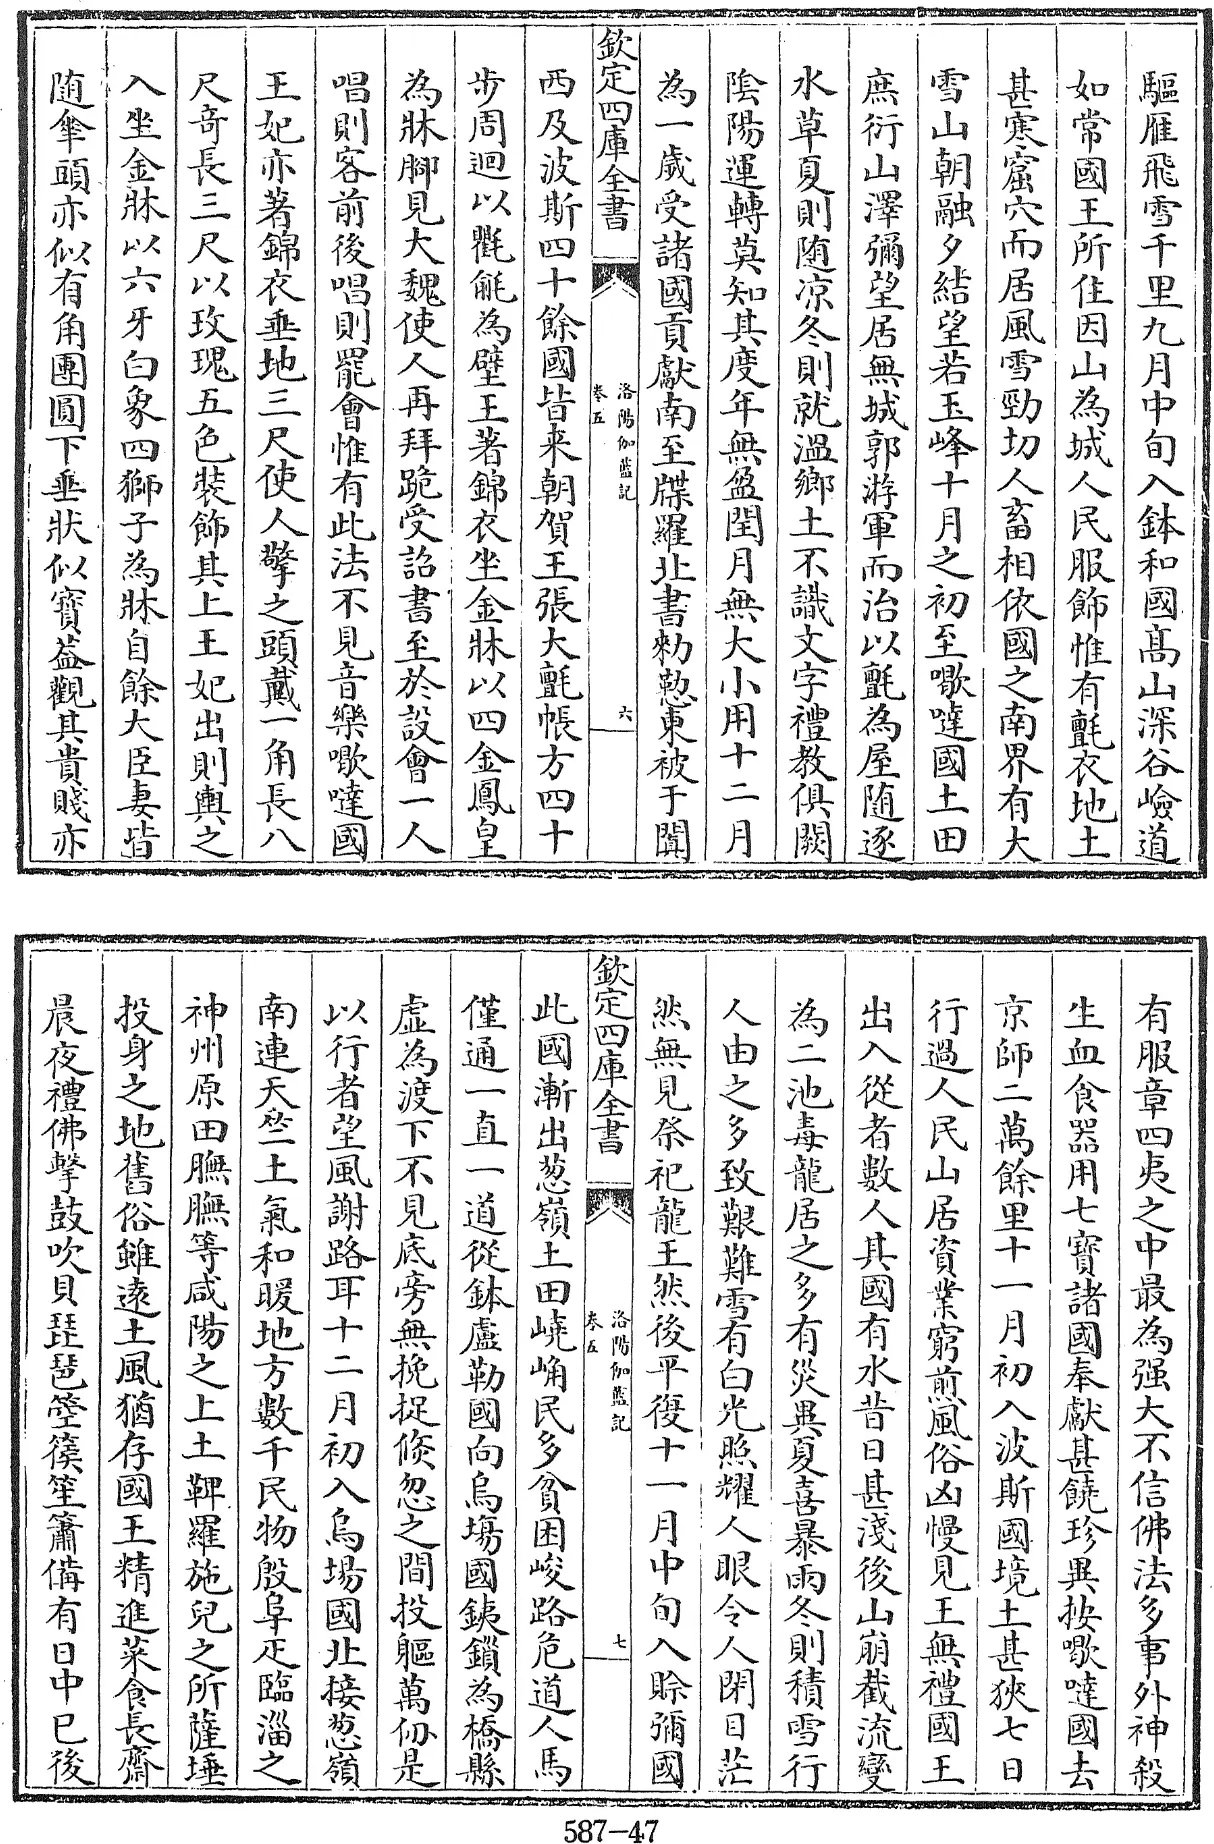 驅雁飛雪千里九月中旬入鉢和國髙山深谷嶮道
如常國王所住因山為城人民服飾惟有氈衣地土
甚寒窟穴而居風雪勁切人畜相依國之南界有大
雪山朝融夕結望若玉峰十月之初至嚈噠國土田
庶衍山澤彌望居無城郭游軍而治以氈為屋随逐
水草夏則随凉冬則就溫鄉土不識文字禮教俱闕
陰陽運轉莫知其度年無盈閏月無大小用十二月
為一歲受諸國貢獻南至牒羅北書勑懃東被于闐
欽定四庫全書
洛陽伽藍記
卷五
六
西及波斯四十餘國皆来朝賀王張大氈帳方四十
步周迴以氍毹為壁王著錦衣坐金牀以四金鳳皇
為牀腳見大魏使人再拜跪受詔書至於設會一人
唱則客前後唱則罷會惟有此法不見音樂嚈噠國
王妃亦著錦衣垂地三尺使人擎之頭戴一角長八
尺竒長三尺以玫瑰五色裝飾其上王妃出則輿之
入坐金牀以六牙白象四獅子為牀自餘大臣妻皆
随傘頭亦似有角團圓下垂狀似寶蓋觀其貴賤亦
有服章四夷之中最為强大不信佛法多事外神殺
生血食器用七寶諸國奉獻甚饒珍異按嚈噠國去
京師二萬餘里十一月初入波斯國境土甚狹七日
行過人民山居資業窮煎風俗凶慢見王無禮國王
出入從者數人其國有水昔日甚淺後山崩截流變
為二池毒龍居之多有災異夏喜暴雨冬則積雪行
人由之多致艱難雪有白光照耀人眼令人閉目茫
然無見祭祀龍王然後平復十一月中旬入賒彌國
欽定四庫全書
洛陽伽藍記
卷五
七
此國漸出葱嶺土田嶢崅民多貧困峻路危道人馬
僅通一直一道從鉢盧勒國向烏塲國銕鎻為橋縣
虛為渡下不見底旁無挽捉倐忽之間投軀萬仞是
以行者望風謝路耳十二月初入烏場國北接葱嶺
南連天竺土氣和暖地方數千民物殷阜疋臨淄之
神州原田膴膴等咸陽之上土鞞羅施兒之所薩埵
投身之地舊俗雖遠土風猶存國王精進菜食長齋
晨夜禮佛擊鼓吹貝琵琶箜篌笙簫備有日中已後
587-47